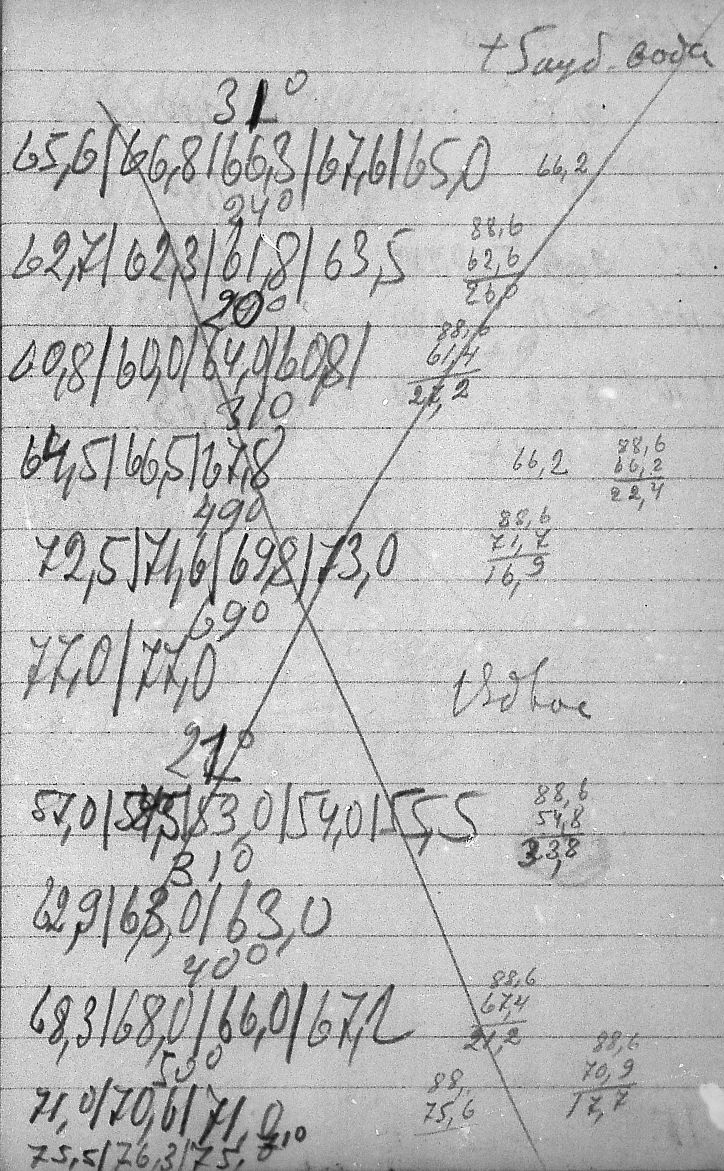 вода
31°
65,6|66,8|66,3|67,6|65,0 66,2
24°
62,7|62,3|61,8|63,5
88,6
62,6
26,0
20°
60,8|60,0|64,0|60,8|
88,6
61,4
27,2
31°
64,5|66,5|67,8 66,2
88,6
66,2
22,4
49°
72,5|71,6|69,8|73,0
88,6
71,7
16,9
69°
77,0|77,0
Вдвое
21°
57,0|54,5|53,0|54,0|55,5
88,6
54,8
33,8
31°
62,9|63,0|63,0
40°
68,3|68,0|66,0|67,2
88,6
67,4
21,2
50°
71,0|70,6|71,0
88,
75,6
88,6
70,9
17,7
75,5|76,3|75,